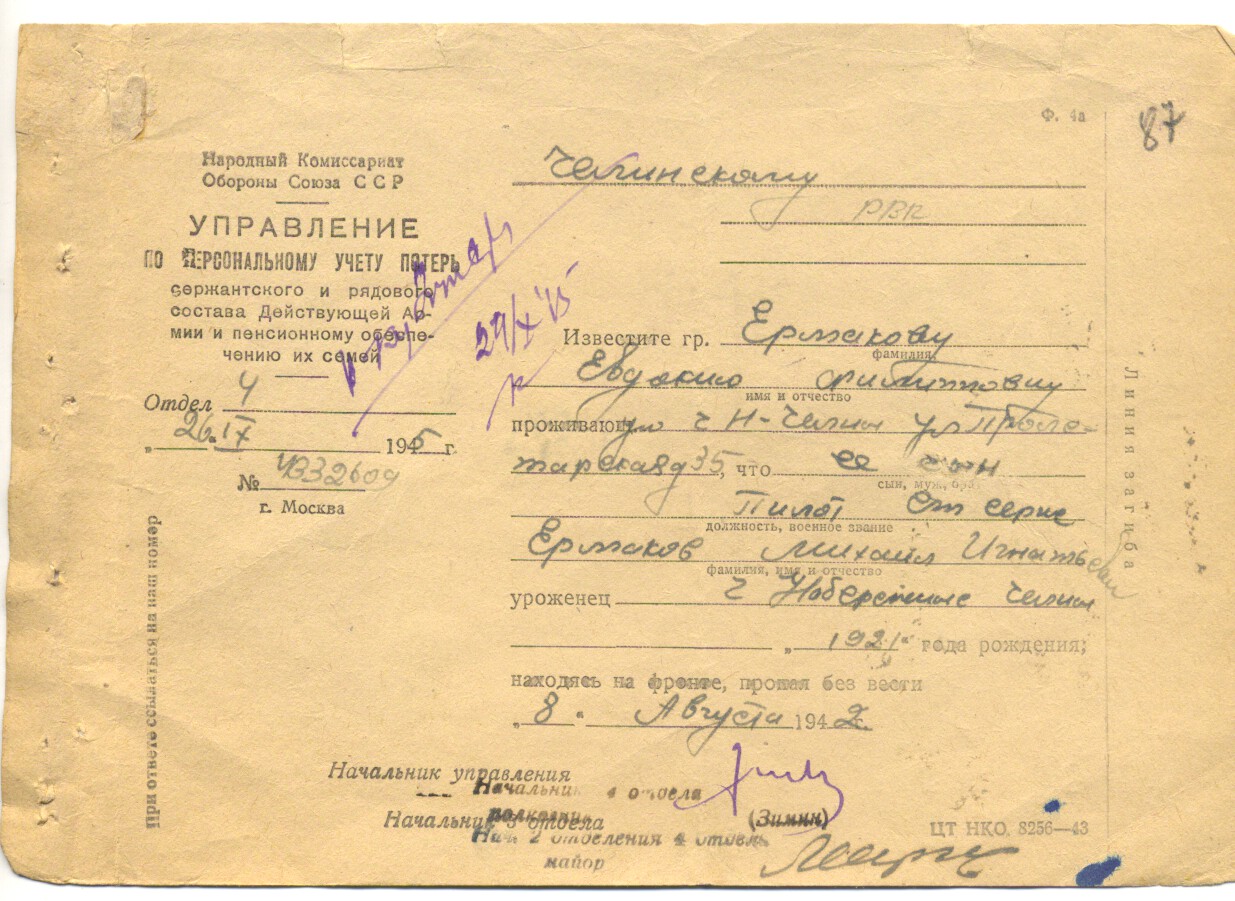 Ф. 4а
87
Народный Комиссариат
Обороны Союза ССР
УПРАВЛЕНИЕ
ПО ПЕРСОНАЛЬНОМУ УЧЕТУ ПОТЕРЬ
сержантского и рядового
состава Действующей Ар-
мии и пенсионному обеспе-
чению их семей
Отдел 4
„26“ IX 1945 г.
№ 4332609
г. Москва
При ответе ссылаться на наш номер
29/X 45
Челнинскому
РВК
Известите гр. Ермакову
фамилия,
Евдокию
имя и отчество
проживающую г Н-Челны ул Проле-
тарская д 35, что ее сын
сын, муж, брат
Пилот ст серж
должность, военное звание
Ермаков Михаил Игнатьевич
фамилия, имя и отчество
уроженец г Набережные Челны
„ 1921 “ года рождения;
находясь на фронте, пропал без вести
„8“ Августа 1942 г.
Линия загиба
Начальник управления
Начальник 4 отдела
полковник (Зимин)
Начальник 3 отдела
Нач 2 отделения 4 отдела
майор
ЦТ НКО. 8256—43